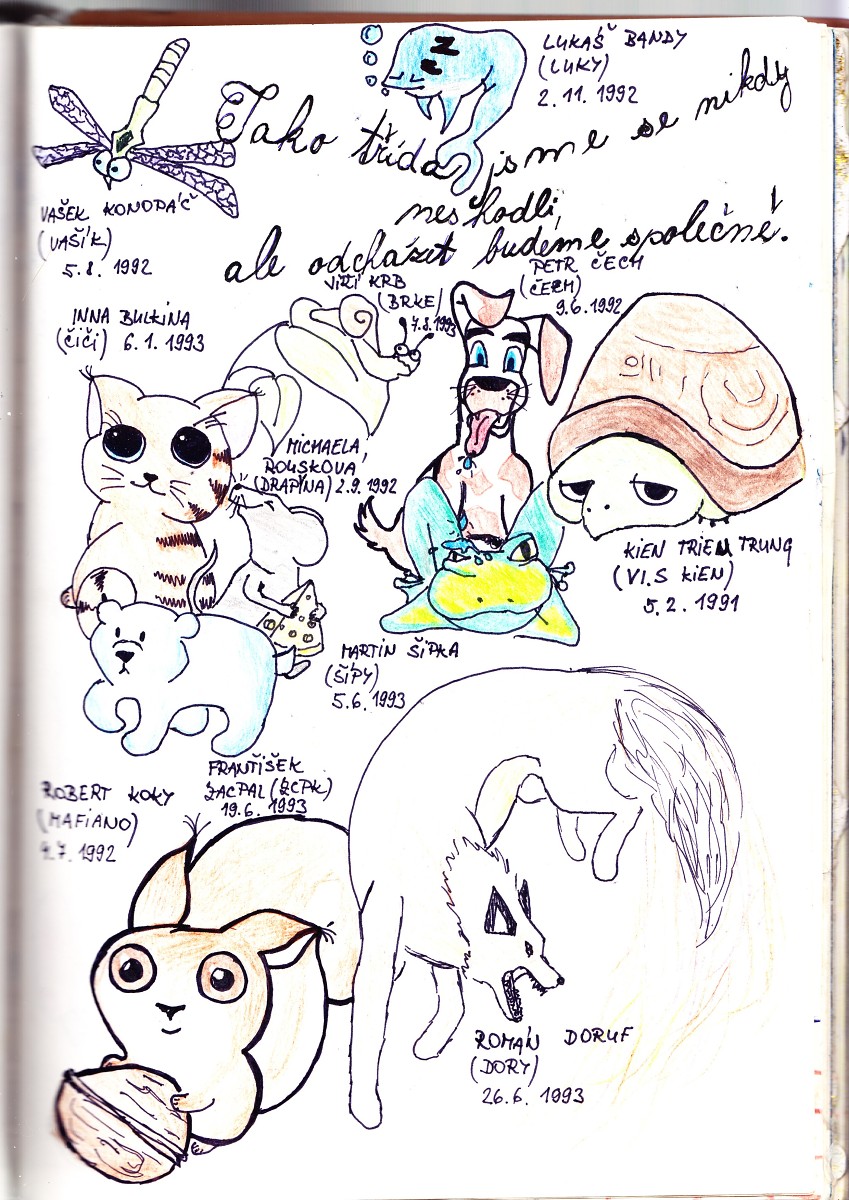 LUKÁŠ BANDY
(LUKY)
2.11.1992
Jako třída jsme se nikdy
neshodli,
ale odcházet budeme společně!
VAŠEK KONOPÁČ
(VAŠÍK)
5.8.1992
JIŘÍ KRB
(BRKE)
7.8.1993
PETR ČECH
(ČECH)
9.6.1992
INNA BULKINA
(čiči) 6.1.1993
MICHAELA
ROUSKOVÁ
(DRAPINA) 2.9.1992
KIEN TRIEN TRUNG
(VI.S KIEN)
5.2.1991
MARTIN ŠÍPKA
(ŠÍPY)
5.6.1993
FRANTIŠEK
ZACPAL (ZCPK)
19.6.1993
ROBERT KOKY
(MAFIANO)
7.1992
ROMAN DORUF
(DORY)
26.6.1993